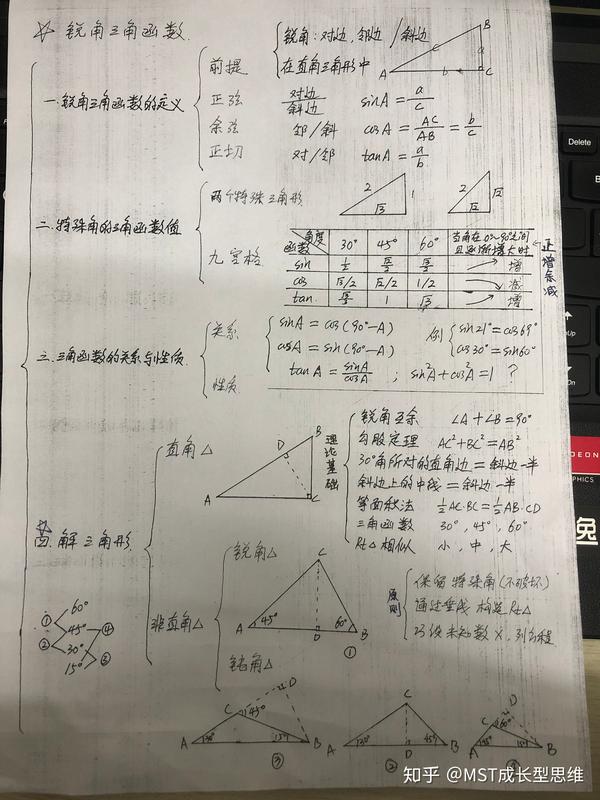 ☆ 锐角三角函数.
一.锐角三角函数的定义
前提
锐角:对边,邻边/斜边
在直角三角形中
正弦 对边/斜边 sinA = a/c
余弦 邻/斜 cosA = AC/AB = b/c
正切 对/邻 tanA = a/b
A B C a b c
二.特殊角的三角函数值
两个特殊三角形
2 1 √3
2 √2 √2
九宫格
函数 角度 30° 45° 60° 当角在0~90°之间且逐渐增大时
sin 1/2 √2/2 √3/2 增
cos √3/2 √2/2 1/2 减
tan √3/3 1 √3 增
正增余减
三.三角函数的关系与性质.
关系
性质
sinA = cos(90°-A)
cosA = sin(90°-A)
例 sin21°=cos69°
cos30°=sin60°
tanA = sinA/cosA ; sin²A+cos²A=1 ?
四.解三角形
直角△
A B C D
理论基础
锐角互余 ∠A+∠B=90°
勾股定理 AC²+BC²=AB²
30°角所对的直角边=斜边一半
斜边上的中线=斜边一半
等面积法 ½AC·BC=½AB·CD
三角函数 30°,45°,60°
Rt△相似 小,中,大
非直角△
锐角△
A 45° D 60° B C ①
钝角△
原则
保留特殊角(不破坏)
通过垂线构造Rt△
巧设未知数x,列方程
① 60°
45° ④
② 30°
15° ③
A 30° C 45° D 15° B ③
A 30° C D 45° B ②
A 45° C 60° D 15° B
Delete
PgUp
PgDn
End
DEON
PHICS
知乎 @MST成长型思维